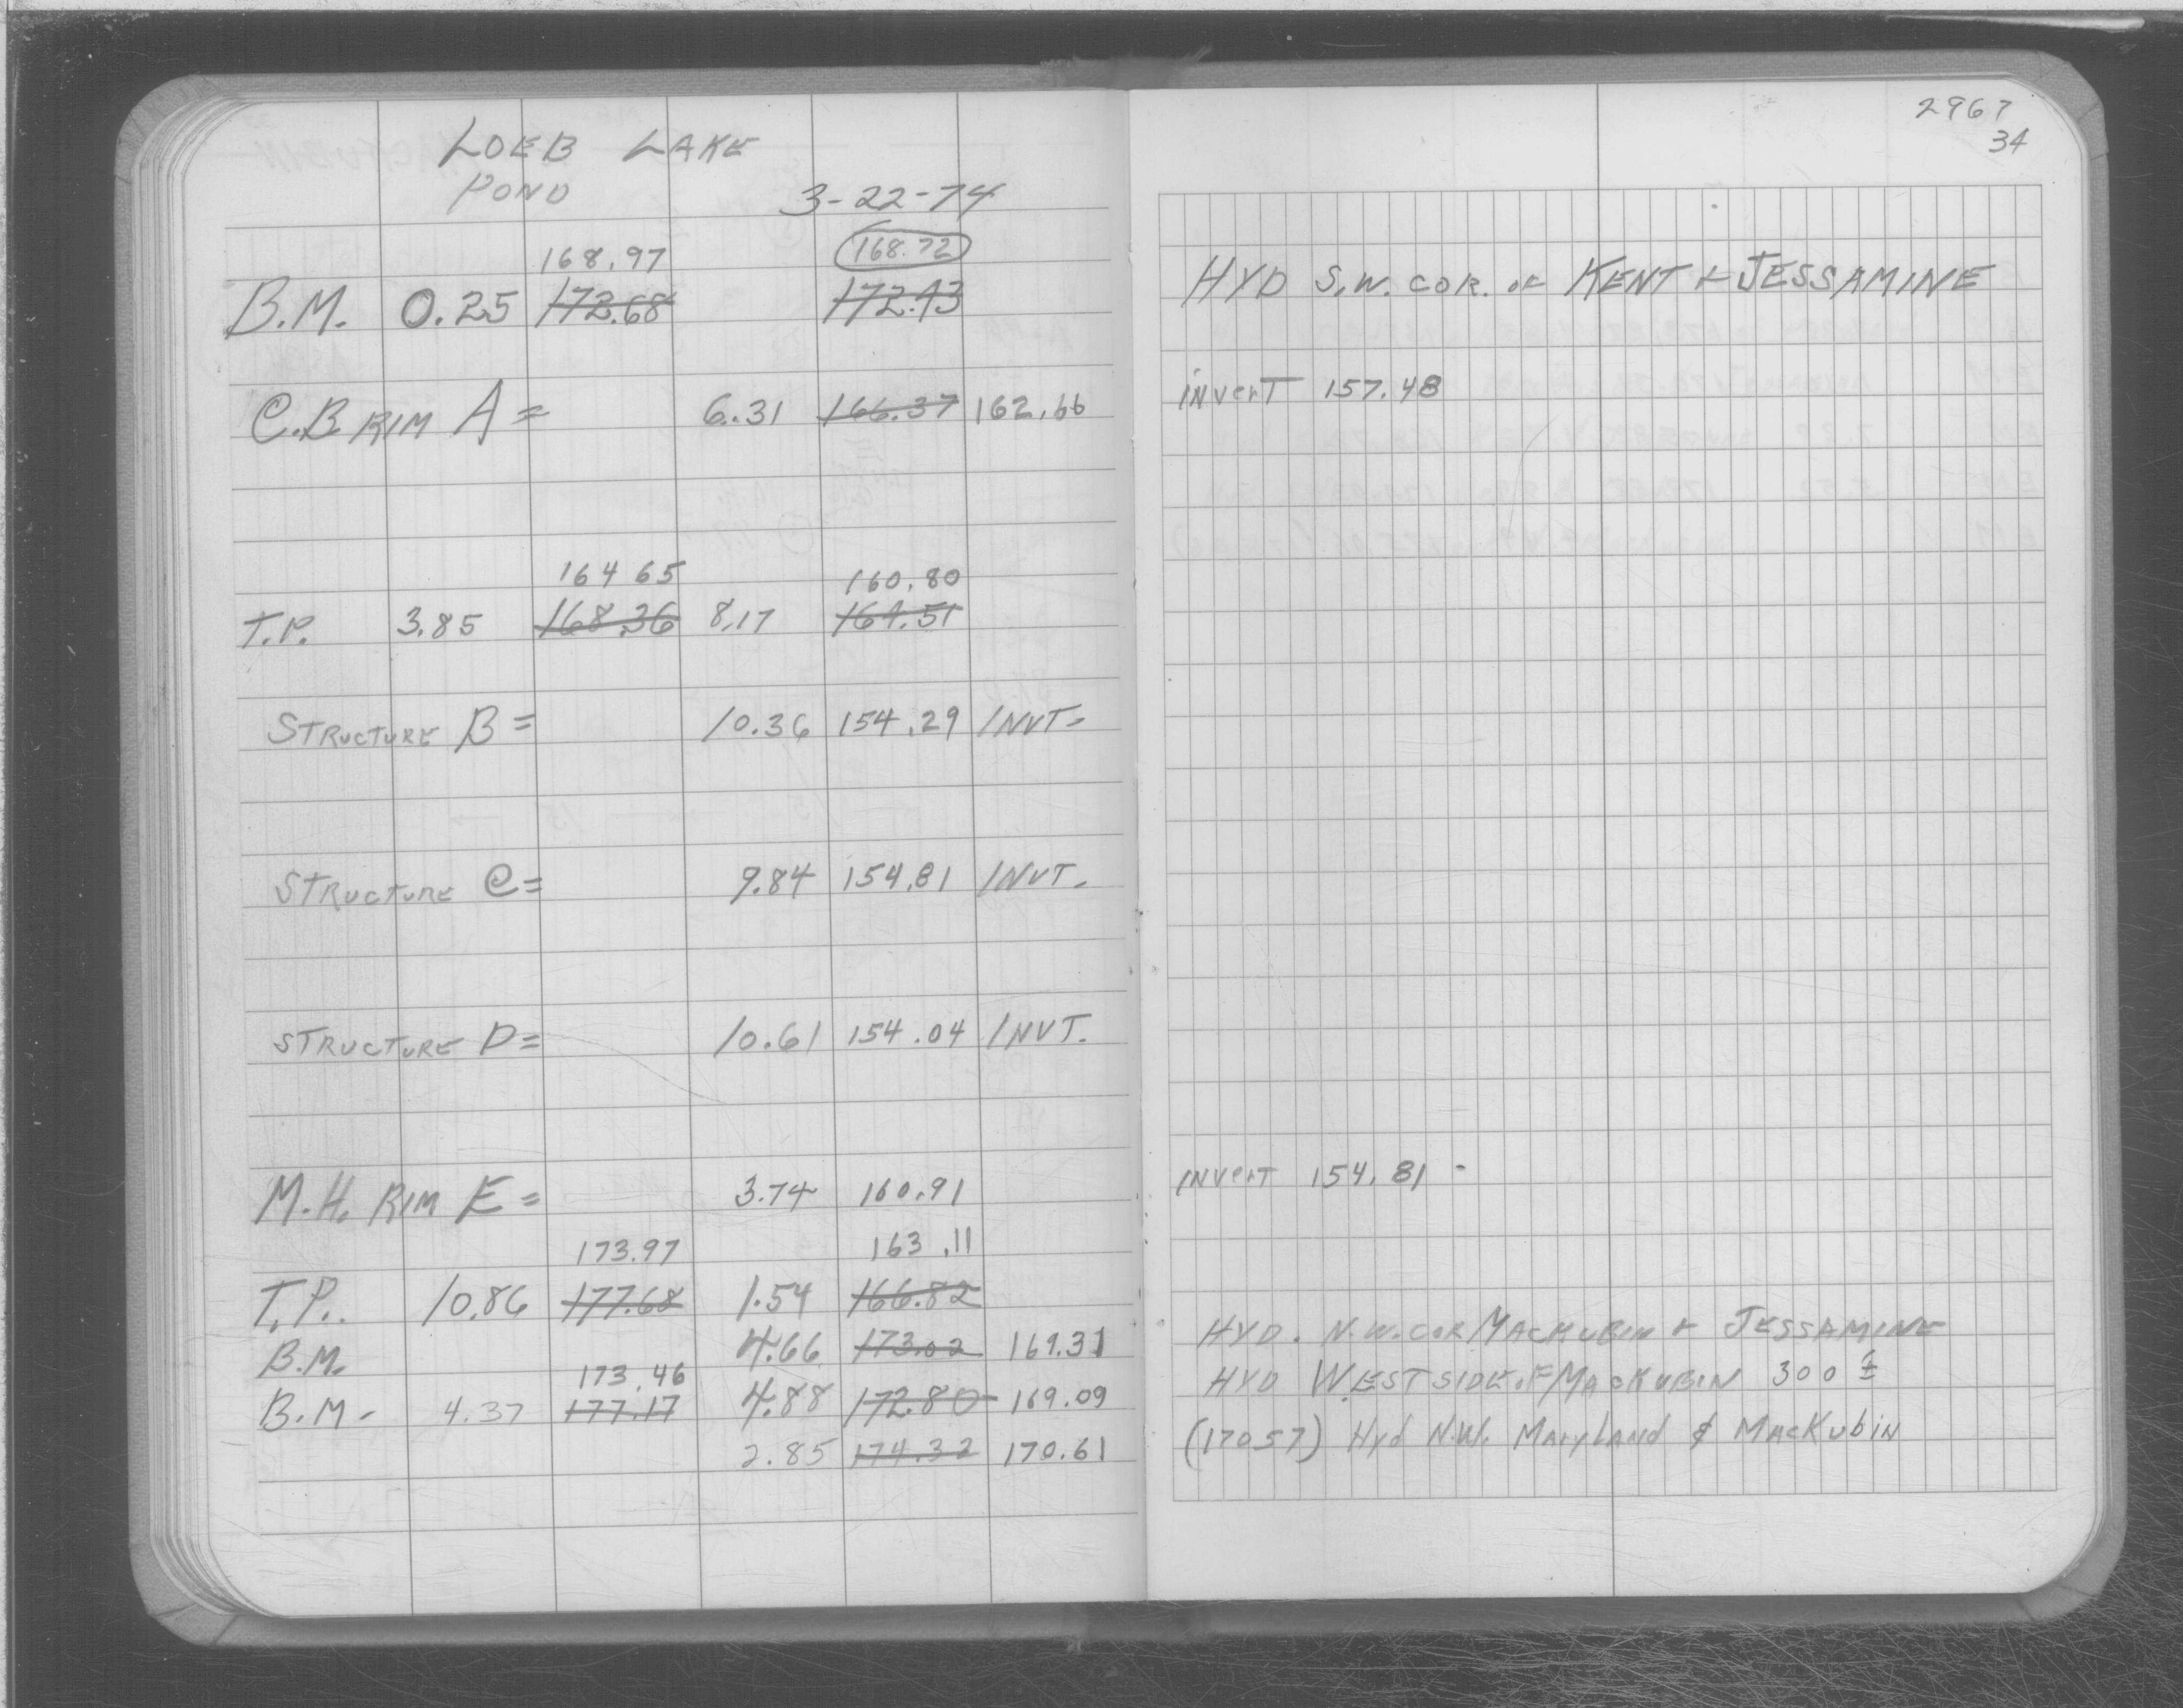 LOEB LAKE
POND
3-22-74
168.97 168.72
B.M. 0.25 172.68 172.43
C.B. RIM A = 6.31 166.37 162.66
164 65 160.80
T.P. 3.85 168.36 8.17 164.51
STRUCTURE B = 10.36 154.29 INVT-
STRUCTURE C = 9.84 154.81 INVT.
STRUCTURE D = 10.61 154.04 INVT.
M.H. RIM E = 3.74 160.91
173.97 163.11
T.P. 10.86 177.68 1.54 166.82
B.M. 4.66 173.02 169.31
173.46
B.M- 4.37 177.17 4.88 172.80 169.09
2.85 174.32 170.61
2967
34
HYD S.W. COR. OF KENT & JESSAMINE
INVERT 157.48
INVERT 154.81 -
HYD. N.W. COR MACKUBIN & JESSAMINE
HYD WEST SIDE OF MACKUBIN 300 ±
(17057) Hyd N.W. MaryLand & MacKubin